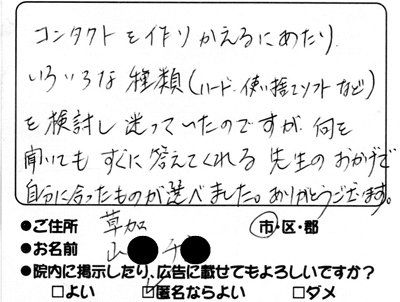 コンタクトを作りかえるにあたり、
いろいろな種類（ハード、使い捨てソフトなど）
を検討し迷っていたのですが、何を
聞いてもすぐに答えてくれる先生のおかげで
自分に合ったものが選べました。ありがとうございます。
●ご住所 草加 市・区・郡
●お名前 山 千
●院内に掲示したり、広告に載せてもよろしいですか？
□よい ☑匿名ならよい □ダメ